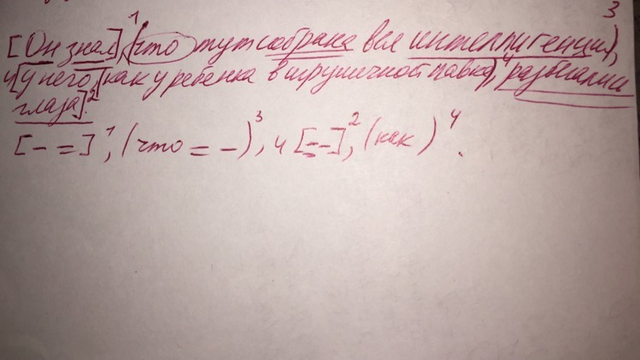 3
[Он знал],¹ (что тут собрана вся интеллигенция),
и [у него, (как у ребенка в игрушечной лавке),⁴ разбегались
глаза].²
[– =]¹, (что = –)³, и [= –]², (как)⁴.